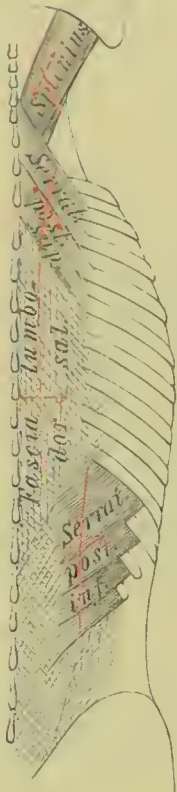 Splenius
Serrat.
post.
sup.
Fascia lumbo-
dorsal.
Serrat.
post.
inf.